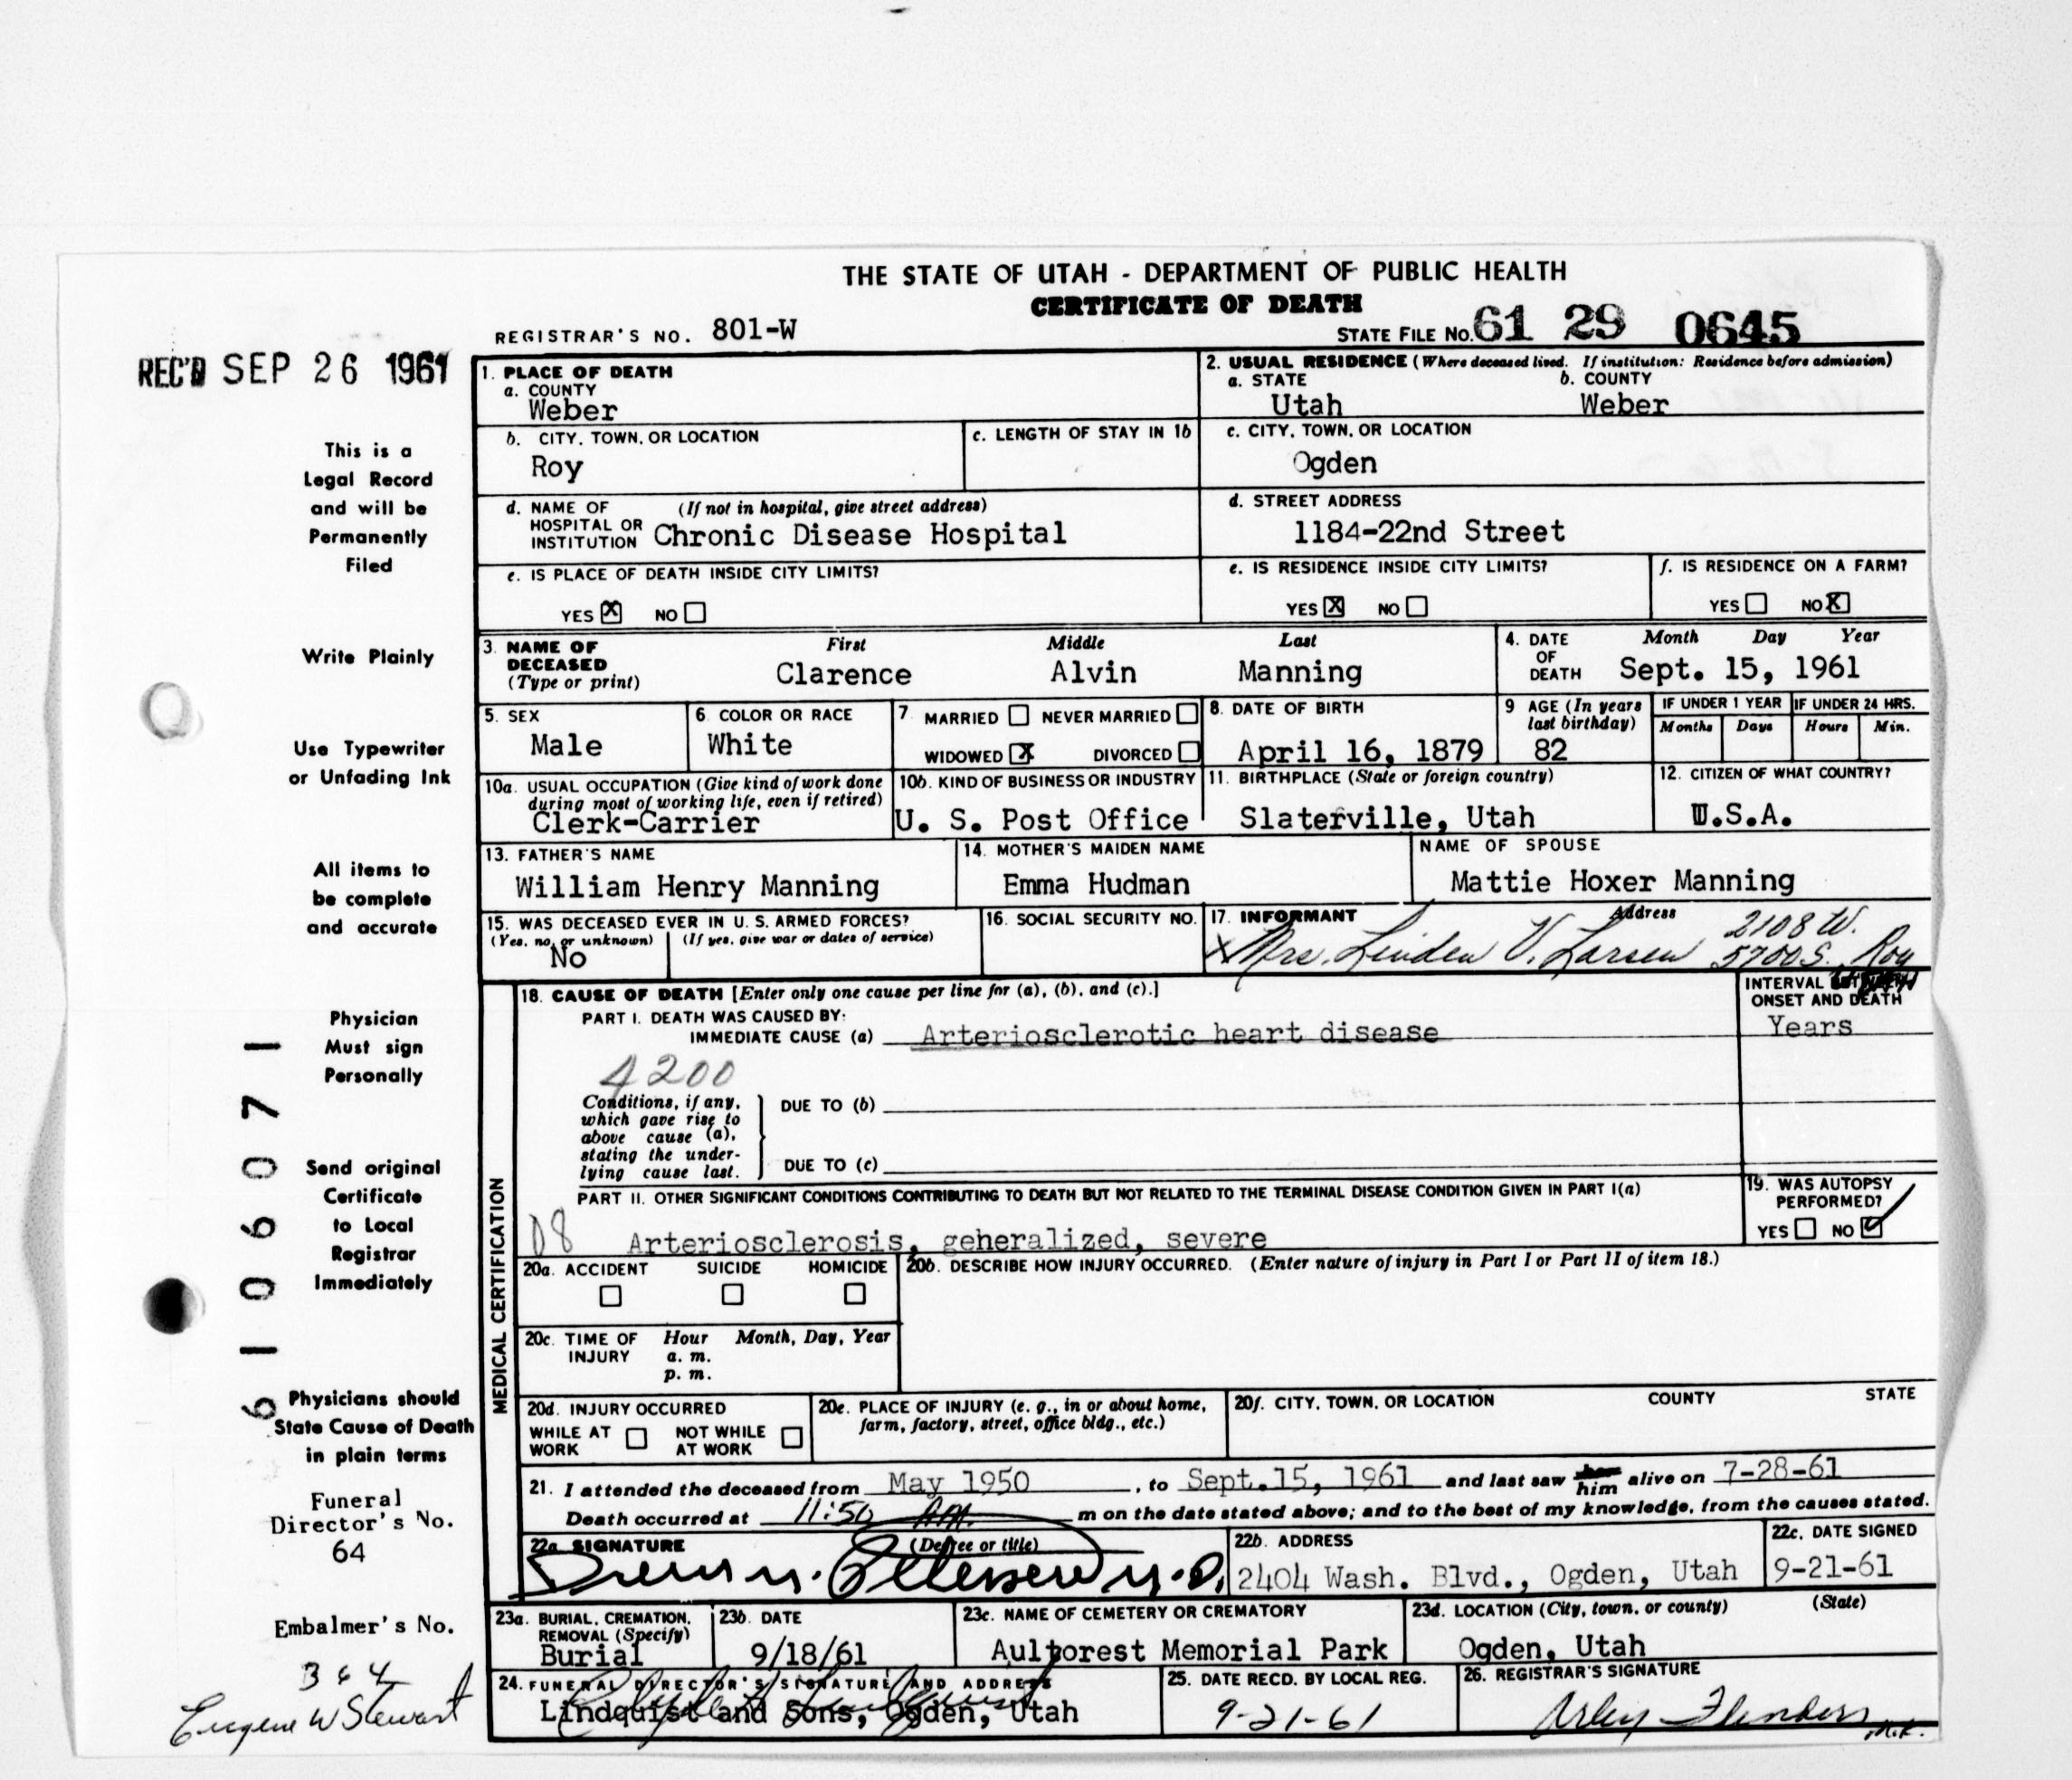 THE STATE OF UTAH - DEPARTMENT OF PUBLIC HEALTH
CERTIFICATE OF DEATH
REGISTRAR'S NO. 801-W
STATE FILE NO. 61 29 0645
REC'D SEP 26 1961
This is a
Legal Record
and will be
Permanently
Filed
Write Plainly
Use Typewriter
or Unfading Ink
All items to
be complete
and accurate
Physician
Must sign
Personally
Send original
Certificate
to Local
Registrar
Immediately
Physicians should
State Cause of Death
in plain terms
Funeral
Director's No.
64
Embalmer's No.
364
Eugene W Stewart
6106071
1. PLACE OF DEATH
a. COUNTY
Weber
2. USUAL RESIDENCE (Where deceased lived. If institution: Residence before admission)
a. STATE b. COUNTY
Utah Weber
b. CITY, TOWN, OR LOCATION
Roy
c. LENGTH OF STAY IN 1b
c. CITY, TOWN, OR LOCATION
Ogden
d. NAME OF (If not in hospital, give street address)
HOSPITAL OR
INSTITUTION Chronic Disease Hospital
d. STREET ADDRESS
1184-22nd Street
e. IS PLACE OF DEATH INSIDE CITY LIMITS?
YES X NO
e. IS RESIDENCE INSIDE CITY LIMITS?
YES X NO
f. IS RESIDENCE ON A FARM?
YES NO X
3. NAME OF DECEASED (Type or print)
First Middle Last
Clarence Alvin Manning
4. DATE OF DEATH Month Day Year
Sept. 15, 1961
5. SEX
Male
6. COLOR OR RACE
White
7. MARRIED NEVER MARRIED
WIDOWED X DIVORCED
8. DATE OF BIRTH
April 16, 1879
9 AGE (In years last birthday)
82
IF UNDER 1 YEAR IF UNDER 24 HRS.
Months Days Hours Min.
10a. USUAL OCCUPATION (Give kind of work done
during most of working life, even if retired)
Clerk-Carrier
10b. KIND OF BUSINESS OR INDUSTRY
U. S. Post Office
11. BIRTHPLACE (State or foreign country)
Slaterville, Utah
12. CITIZEN OF WHAT COUNTRY?
U.S.A.
13. FATHER'S NAME
William Henry Manning
14. MOTHER'S MAIDEN NAME
Emma Hudman
NAME OF SPOUSE
Mattie Hoxer Manning
15. WAS DECEASED EVER IN U. S. ARMED FORCES?
(Yes, no, or unknown) (If yes, give war or dates of service)
No
16. SOCIAL SECURITY NO.
17. INFORMANT Address
X Mrs. Linden V. Larsen 2108 W.
5700 S. Roy
MEDICAL CERTIFICATION
18. CAUSE OF DEATH [Enter only one cause per line for (a), (b), and (c).]
PART I. DEATH WAS CAUSED BY:
IMMEDIATE CAUSE (a) Arteriosclerotic heart disease
INTERVAL BETWEEN
ONSET AND DEATH
Years
4200
Conditions, if any,
which gave rise to
above cause (a),
stating the under-
lying cause last.
DUE TO (b)
DUE TO (c)
PART II. OTHER SIGNIFICANT CONDITIONS CONTRIBUTING TO DEATH BUT NOT RELATED TO THE TERMINAL DISEASE CONDITION GIVEN IN PART I(a)
Arteriosclerosis, geheralized, severe
19. WAS AUTOPSY
PERFORMED?
YES NO ✓
20a. ACCIDENT SUICIDE HOMICIDE
20b. DESCRIBE HOW INJURY OCCURRED. (Enter nature of injury in Part I or Part II of item 18.)
20c. TIME OF INJURY Hour Month, Day, Year
a. m.
p. m.
20d. INJURY OCCURRED
WHILE AT WORK NOT WHILE AT WORK
20e. PLACE OF INJURY (e. g., in or about home,
farm, factory, street, office bldg., etc.)
20f. CITY, TOWN, OR LOCATION COUNTY STATE
21. I attended the deceased from May 1950, to Sept.15, 1961 and last saw her him alive on 7-28-61
Death occurred at 11:50 A.M. m on the date stated above; and to the best of my knowledge, from the causes stated.
22a SIGNATURE (Degree or title)
M.D.
22b. ADDRESS
2404 Wash. Blvd., Ogden, Utah
22c. DATE SIGNED
9-21-61
23a. BURIAL, CREMATION,
REMOVAL (Specify)
Burial
23b. DATE
9/18/61
23c. NAME OF CEMETERY OR CREMATORY
Aultorest Memorial Park
23d. LOCATION (City, town, or county) (State)
Ogden, Utah
24. FUNERAL DIRECTOR'S SIGNATURE AND ADDRESS
Lindquist and Sons, Ogden, Utah
25. DATE RECD. BY LOCAL REG.
9-21-61
26. REGISTRAR'S SIGNATURE
Arley Flinders